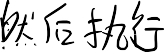 然后执行